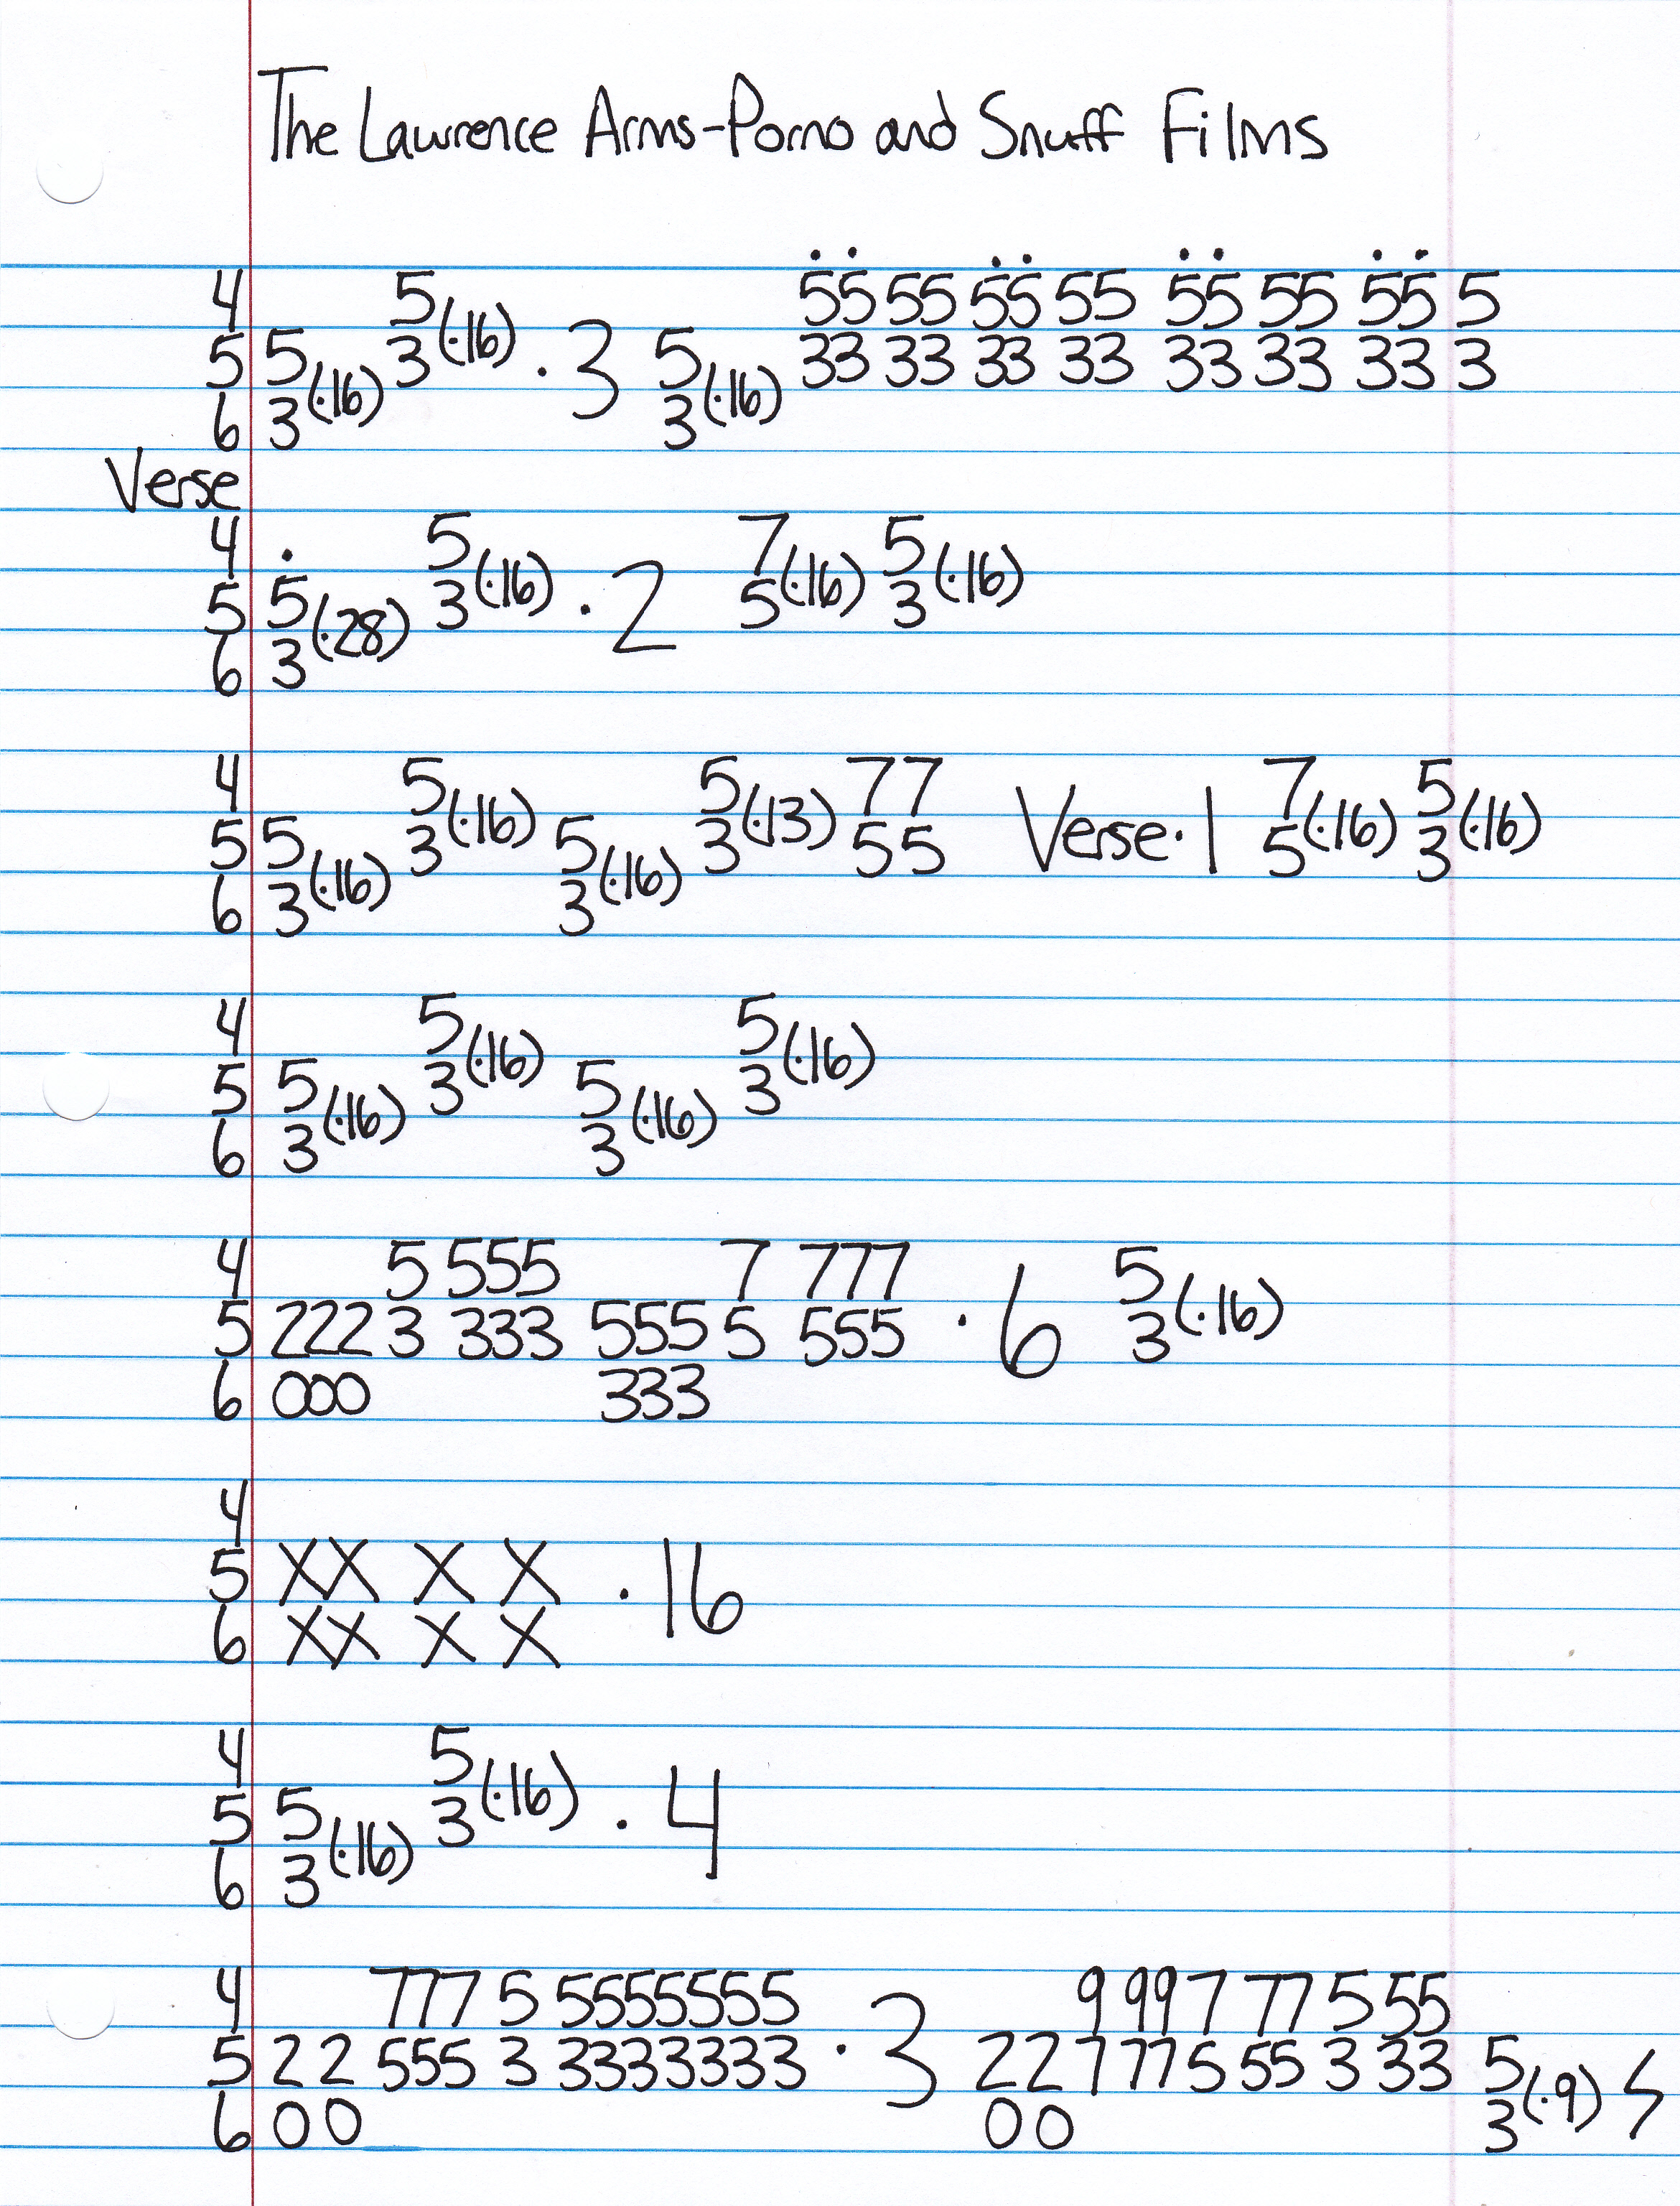 The Lawrence Arms-Porno and Snuff Films
4 5(·16) 55 55 55 55 55 55 55 5
5 5(·16) 3 ·3 5(·16) 33 33 33 33 33 33 33 3
6 3 3
Verse
4 5(·16) 7(·16) 5(·16)
5 5(·28) 3 ·2 5 3
6 3
4 5(·16) 5(·13) 77 7(·16) 5(·16)
5 5(·16) 3 5(·16) 3 55 Verse·1 5 3
6 3 3
4 5(·16) 5(·16)
5 5(·16) 3 5(·16) 3
6 3 3
4 5 555 7 777 5(·16)
5 222 3 333 555 5 555 ·6 3
6 000 333
4
5 XX X X ·16
6 XX X X
4 5(·16)
5 5(·16) 3 ·4
6 3
4 777 5 5555555 9 997 77 5 55
5 22 555 3 3333333 ·3 22 7 775 55 3 33 5(·9)
6 00 00 3